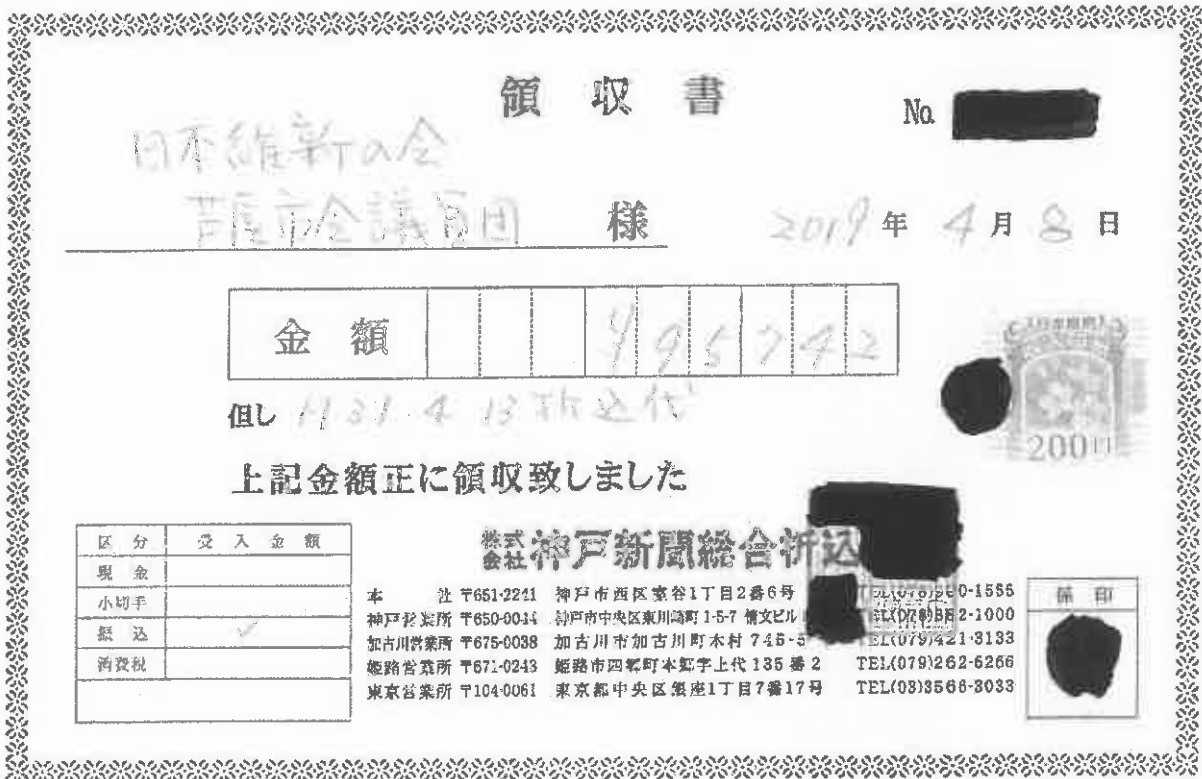 領収書
No.
日本維新の会
芦屋市会議員団 様
2019年4月8日
金額 495742
但し H31.4.13折込代
上記金額正に領収致しました
200円
区分 受入金額
現金
小切手
振込 ✓
消費税
株式会社神戸新聞総合折込
本社 〒651-2241 神戸市西区室谷1丁目2番6号
神戸営業所 〒650-0044 神戸市中央区東川崎町1-5-7
加古川営業所 〒675-0038 加古川市加古川町木村745-5 TEL(079)421-3133
姫路営業所 〒671-0243 姫路市四郷町本郷字上代135番2 TEL(079)262-6266
東京営業所 〒104-0061 東京都中央区銀座1丁目7番17号 TEL(03)3566-3033
係印